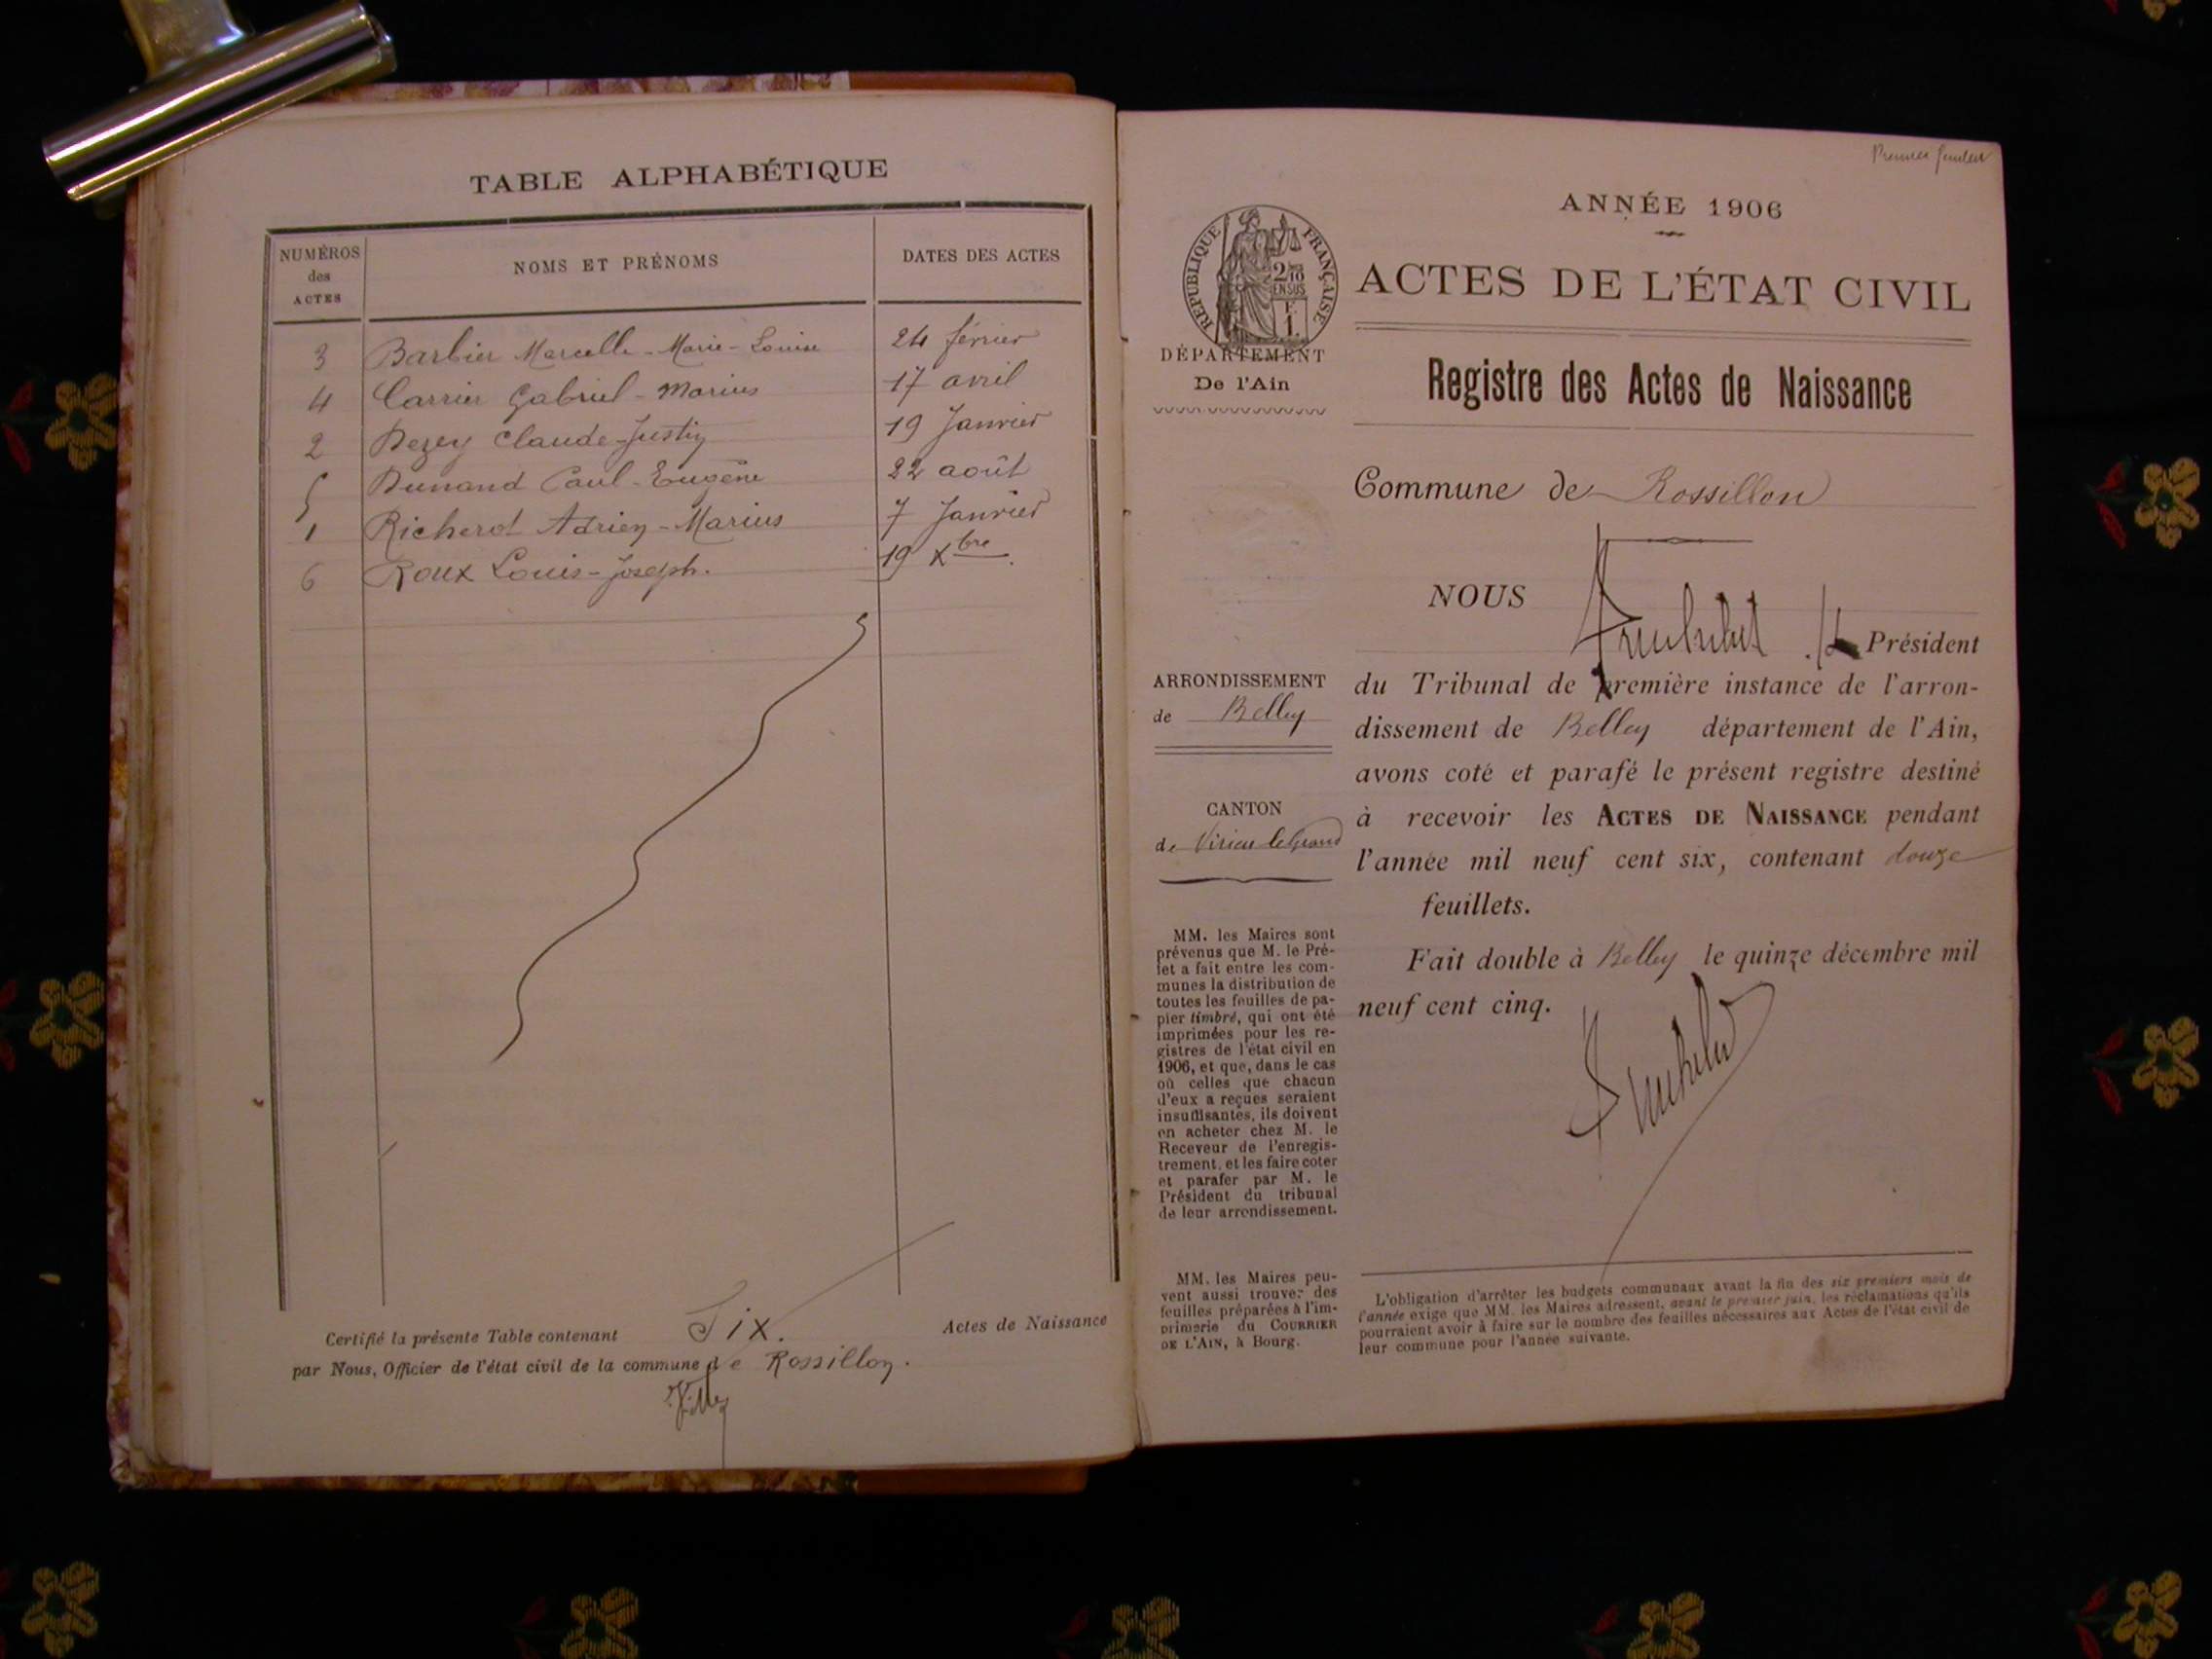 TABLE ALPHABÉTIQUE
NUMÉROS des ACTES
NOMS ET PRÉNOMS
DATES DES ACTES
3 Barbier Marcelle-Marie-Louise 24 février
4 Carrier Gabriel-Marius 17 avril
2 Dezey Claude-Justin 19 Janvier
5 Dunand Paul-Eugène 22 août
1 Richerot Adrien-Marius 7 Janvier
6 Roux Louis-Joseph. 19 Xbre.
Certifié la présente Table contenant Six. Actes de Naissance
par Nous, Officier de l'état civil de la commune de Rossillon.
Premier feuillet
RÉPUBLIQUE FRANÇAISE
2/10
EN SUS
F
1.
DÉPARTEMENT
De l'Ain
ARRONDISSEMENT
de Belley
CANTON
de Virieu le Grand
MM. les Maires sont
prévenus que M. le Pré-
fet a fait entre les com-
munes la distribution de
toutes les feuilles de pa-
pier timbré, qui ont été
imprimées pour les re-
gistres de l'état civil en
1906, et que, dans le cas
où celles que chacun
d'eux a reçues seraient
insuffisantes, ils doivent
en acheter chez M. le
Receveur de l'enregis-
trement, et les faire coter
et parafer par M. le
Président du tribunal
de leur arrondissement.
MM. les Maires peu-
vent aussi trouver des
feuilles préparées à l'im-
primerie du COURRIER
DE L'AIN, à Bourg.
ANNÉE 1906
ACTES DE L'ÉTAT CIVIL
Registre des Actes de Naissance
Commune de Rossillon
NOUS
Président
du Tribunal de première instance de l'arron-
dissement de Belley département de l'Ain,
avons coté et parafé le présent registre destiné
à recevoir les ACTES DE NAISSANCE pendant
l'année mil neuf cent six, contenant douze
feuillets.
Fait double à Belley le quinze décembre mil
neuf cent cinq.
L'obligation d'arrêter les budgets communaux avant la fin des six premiers mois de
l'année exige que MM. les Maires adressent, avant le premier juin, les réclamations qu'ils
pourraient avoir à faire sur le nombre des feuilles nécessaires aux Actes de l'état civil de
leur commune pour l'année suivante.